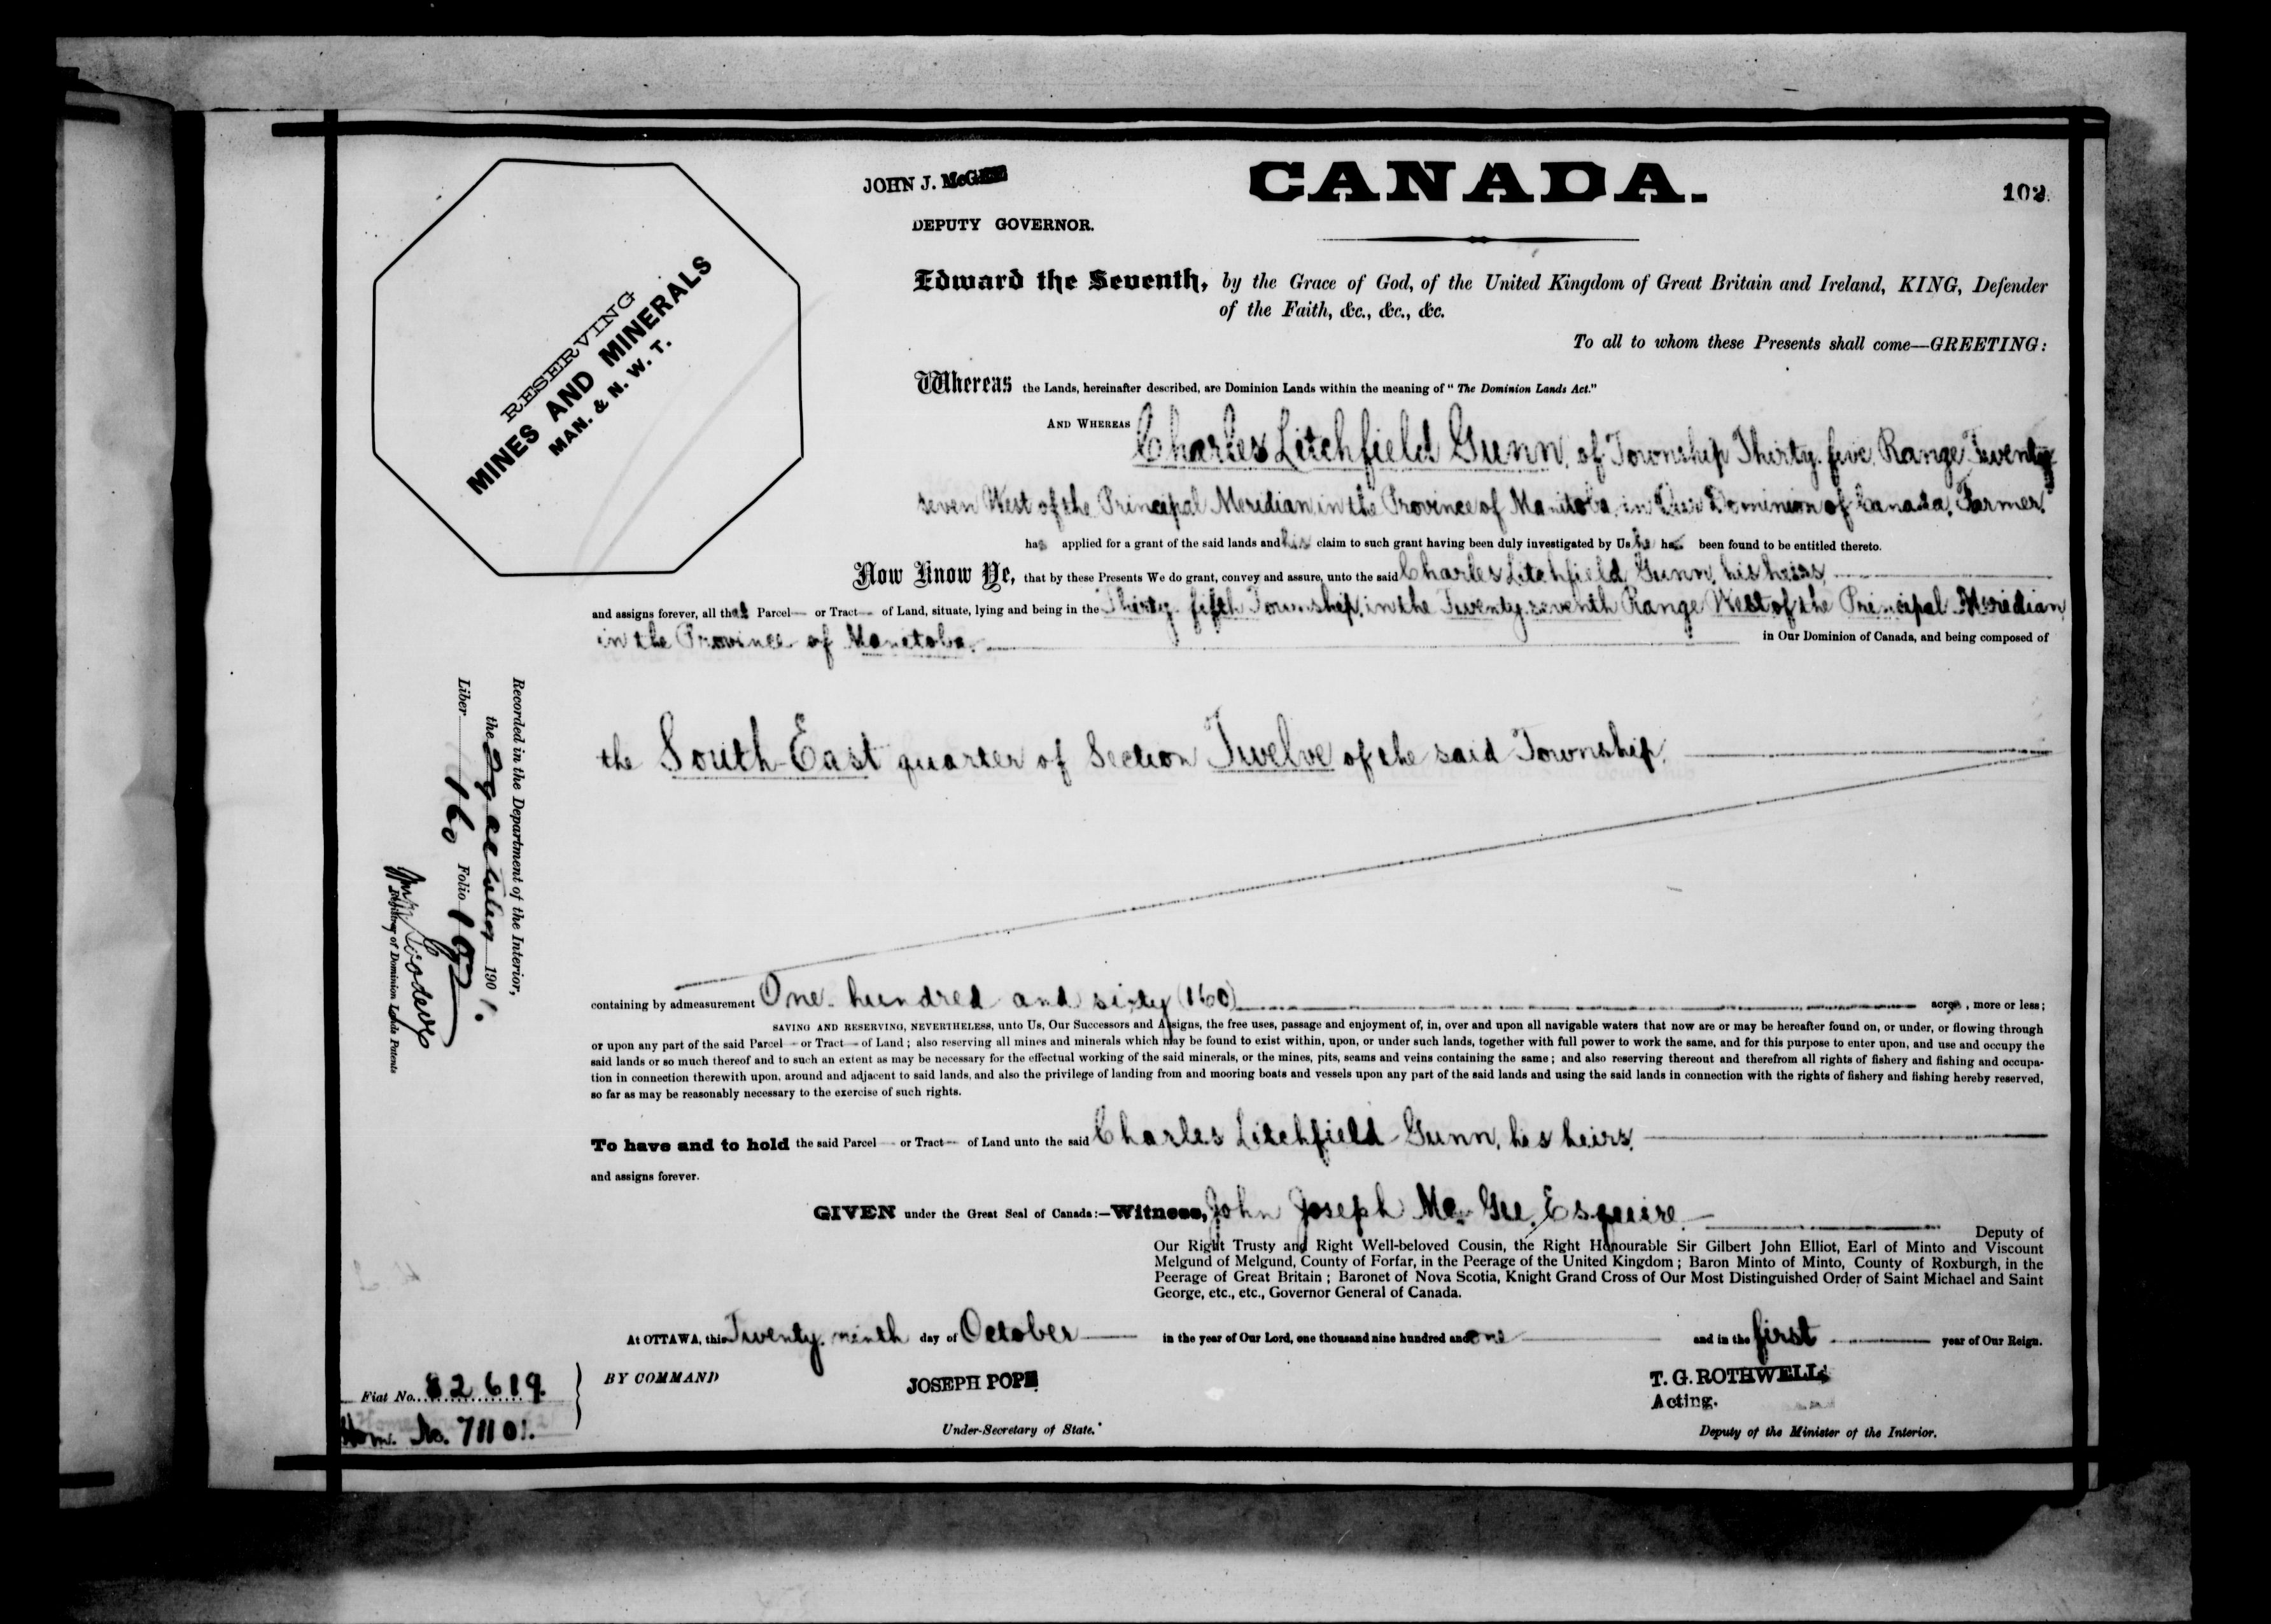 JOHN J. McGEE
DEPUTY GOVERNOR.
CANADA.
102.
RESERVING
MINES AND MINERALS
MAN. & N. W. T.
Edward the Seventh, by the Grace of God, of the United Kingdom of Great Britain and Ireland, KING, Defender
of the Faith, &c., &c., &c.
To all to whom these Presents shall come—GREETING:
Whereas the Lands, hereinafter described, are Dominion Lands within the meaning of "The Dominion Lands Act."
AND WHEREAS Charles Litchfield Gunn, of Township Thirty-five, Range Twenty
seven West of the Principal Meridian in the Province of Manitoba, in Our Dominion of Canada, Farmer,
has applied for a grant of the said lands and his claim to such grant having been duly investigated by Us he has been found to be entitled thereto.
Now Know Ye, that by these Presents We do grant, convey and assure, unto the said Charles Litchfield Gunn, his heirs,
and assigns forever, all that Parcel or Tract of Land, situate, lying and being in the Thirty-fifth Township, in the Twenty-seventh Range West of the Principal Meridian,
in the Province of Manitoba, in Our Dominion of Canada, and being composed of
the South-East quarter of Section Twelve of the said Township,
containing by admeasurement One hundred and sixty (160) acres, more or less;
SAVING AND RESERVING, NEVERTHELESS, unto Us, Our Successors and Assigns, the free uses, passage and enjoyment of, in, over and upon all navigable waters that now are or may be hereafter found on, or under, or flowing through
or upon any part of the said Parcel or Tract of Land; also reserving all mines and minerals which may be found to exist within, upon, or under such lands, together with full power to work the same, and for this purpose to enter upon, and use and occupy the
said lands or so much thereof and to such an extent as may be necessary for the effectual working of the said minerals, or the mines, pits, seams and veins containing the same; and also reserving thereout and therefrom all rights of fishery and fishing and occupa-
tion in connection therewith upon, around and adjacent to said lands, and also the privilege of landing from and mooring boats and vessels upon any part of the said lands and using the said lands in connection with the rights of fishery and fishing hereby reserved,
so far as may be reasonably necessary to the exercise of such rights.
To have and to hold the said Parcel or Tract of Land unto the said Charles Litchfield Gunn, his heirs,
and assigns forever.
GIVEN under the Great Seal of Canada:—Witness, John Joseph McGee, Esquire, Deputy of
Our Right Trusty and Right Well-beloved Cousin, the Right Honourable Sir Gilbert John Elliot, Earl of Minto and Viscount
Melgund of Melgund, County of Forfar, in the Peerage of the United Kingdom; Baron Minto of Minto, County of Roxburgh, in the
Peerage of Great Britain; Baronet of Nova Scotia, Knight Grand Cross of Our Most Distinguished Order of Saint Michael and Saint
George, etc., etc., Governor General of Canada.
At OTTAWA, this Twenty-ninth day of October in the year of Our Lord, one thousand nine hundred and one and in the first year of Our Reign.
BY COMMAND
JOSEPH POPE
Under-Secretary of State.
T. G. ROTHWELL,
Acting.
Deputy of the Minister of the Interior.
Fiat No. 82619.
Hom. No. 71101.
Recorded in the Department of the Interior,
the 1901.
Liber 160 Folio 192
Registrar of Dominion Lands Patents